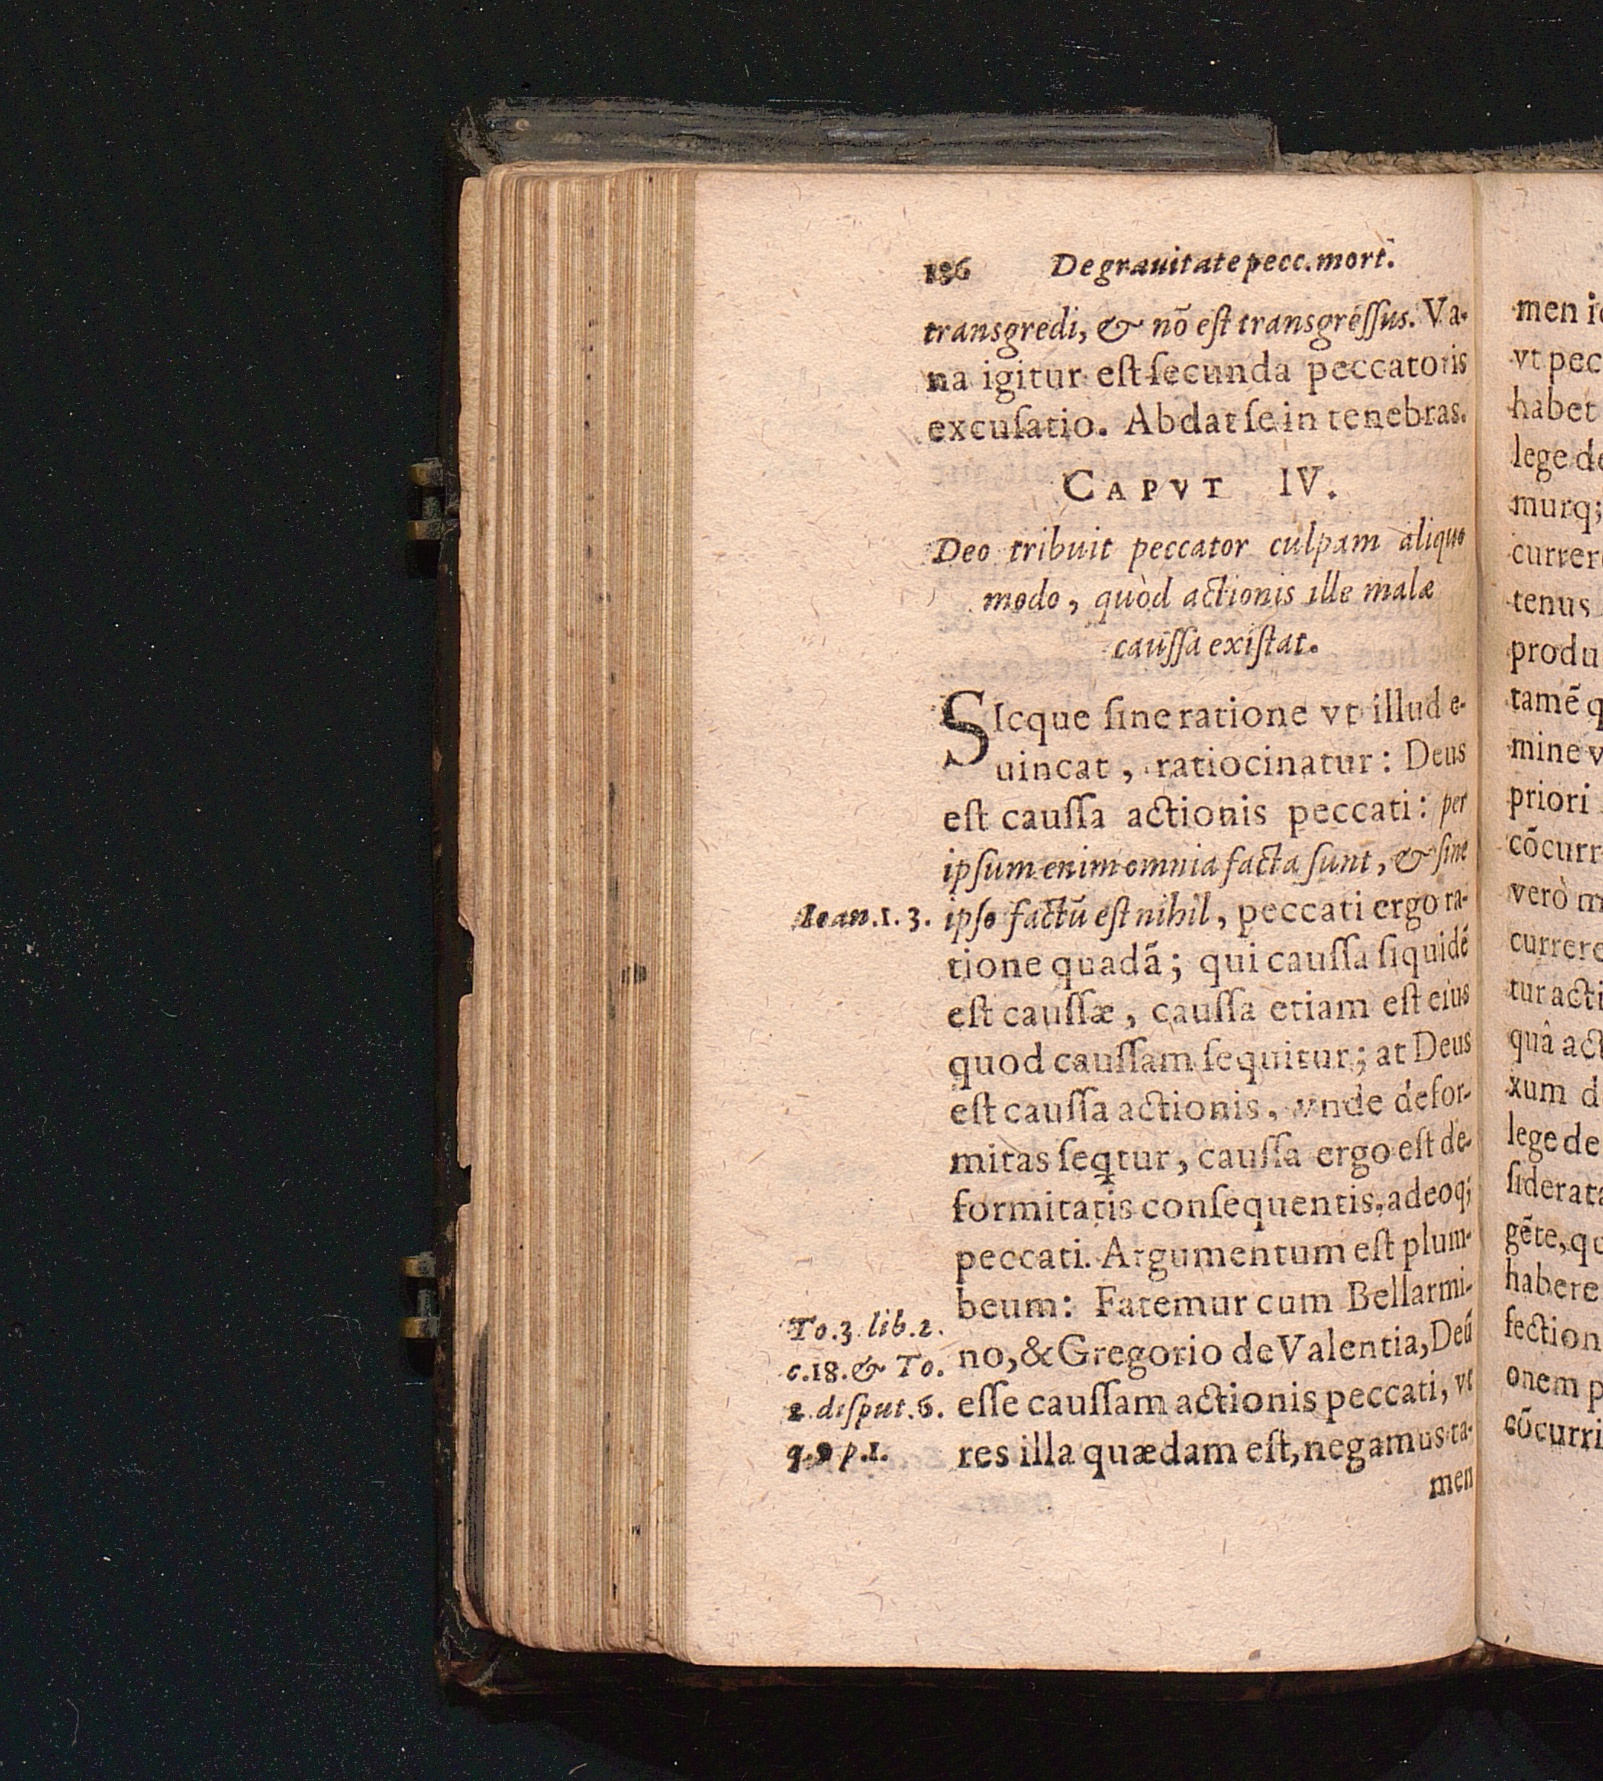 196 De grauitate pecc. mort.
transgredi, & nõ est transgressus. Va-
na igitur est secunda peccatoris
excusatio. Abdat se in tenebras.
CAPVT IV.
Deo tribuit peccator culpam aliquo
modo, quòd actionis ille malæ
caussa existat.
SIcque sine ratione vt illud e-
uincat, ratiocinatur: Deus
est caussa actionis peccati: per
ipsum enim omnia facta sunt, & sine
Ioan.1.3.
ipso factũ est nihil, peccati ergo ra-
tione quadã; qui caussa siquidẽ
est caussæ, caussa etiam est eius
quod caussam sequitur; at Deus
est caussa actionis, vnde defor-
mitas seqtur, caussa ergo est de-
formitatis consequentis, adeoq;
peccati. Argumentum est plum-
beum: Fatemur cum Bellarmi-
To.3 lib.2.
c.18. & To.
2. disput.6.
q.9 p.1.
no, & Gregorio de Valentia, Deũ
esse caussam actionis peccati, vt
res illa quædam est, negamus ta-
men
men
vt pec
habet
lege de
murq;
currer
tenus
produ
tamẽ q
mine v
priori
cõcurr
verò m
currere
tur acti
quâ act
xum d
lege de
siderata
gẽte, qu
habere
fection
onem p
cõcurri